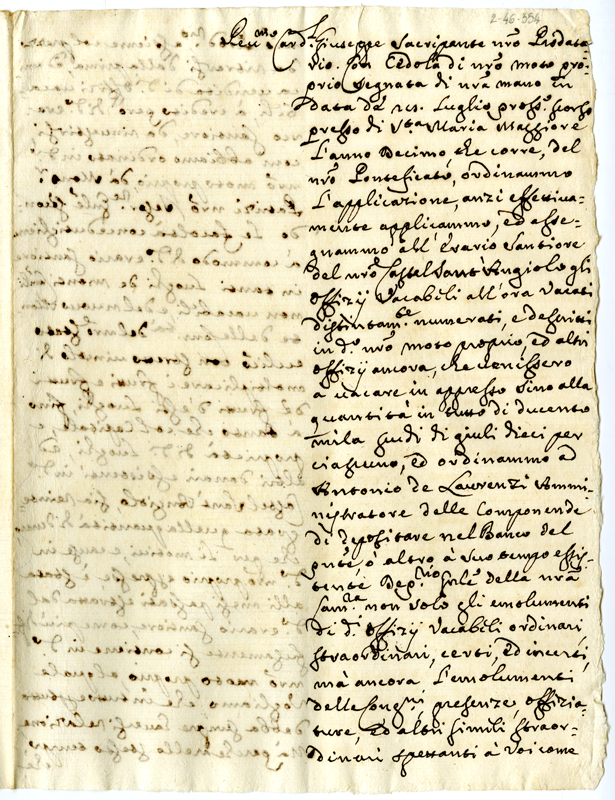 2-46-554
Rev.mo Card.l Giuseppe Sacripante nr̃o Prodata-
rio. Con Cedola di nr̃o moto pro-
prio segnata di nr̃a mano in
data de Luglio pross.o scorso
presso di S.ta Maria Maggiore
l'anno Decimo che corre, del
nr̃o Pontificato, ordinammo
l'applicazione, anzi effettiva-
mente applicammo, ed asse-
gnammo all'Erario Santiore
del nr̃o Castel Sant'Angiolo gli
Offizij Vacabili all'ora Vacati
distintam.te numerati, e descritti
in d.o nr̃o moto proprio, ed altri
offizij ancora, che venissero
a vacare in appresso sino alla
quantità in tutto di ducento
mila scudi di giuli dieci per
ciascuno, ed ordinammo ad
Antonio de Laurenzi Ammi-
nistratore delle Componende
di depositare nel Banco del
pñte, ò altro à suo tempo esis-
tente Dep.rio Gñle della nr̃a
Cam.ra non solo gli emolumenti
di d.i Offizij Vacabili ordinari,
straordinari, certi, ed incerti,
mà ancora l'emolumenti
delle Cong.ni presenze, offizia-
ture, ed altri simili straor-
dinari spettanti à Voi come